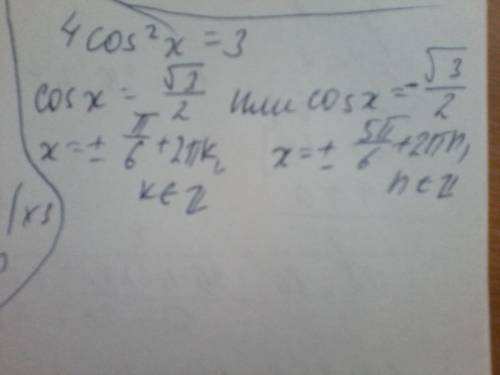 4cos²x = 3
cosx = √3/2 или cosx = -√3/2
x = ± π/6 + 2πk, x = ± 5π/6 + 2πn,
k ∈ Z n ∈ Z